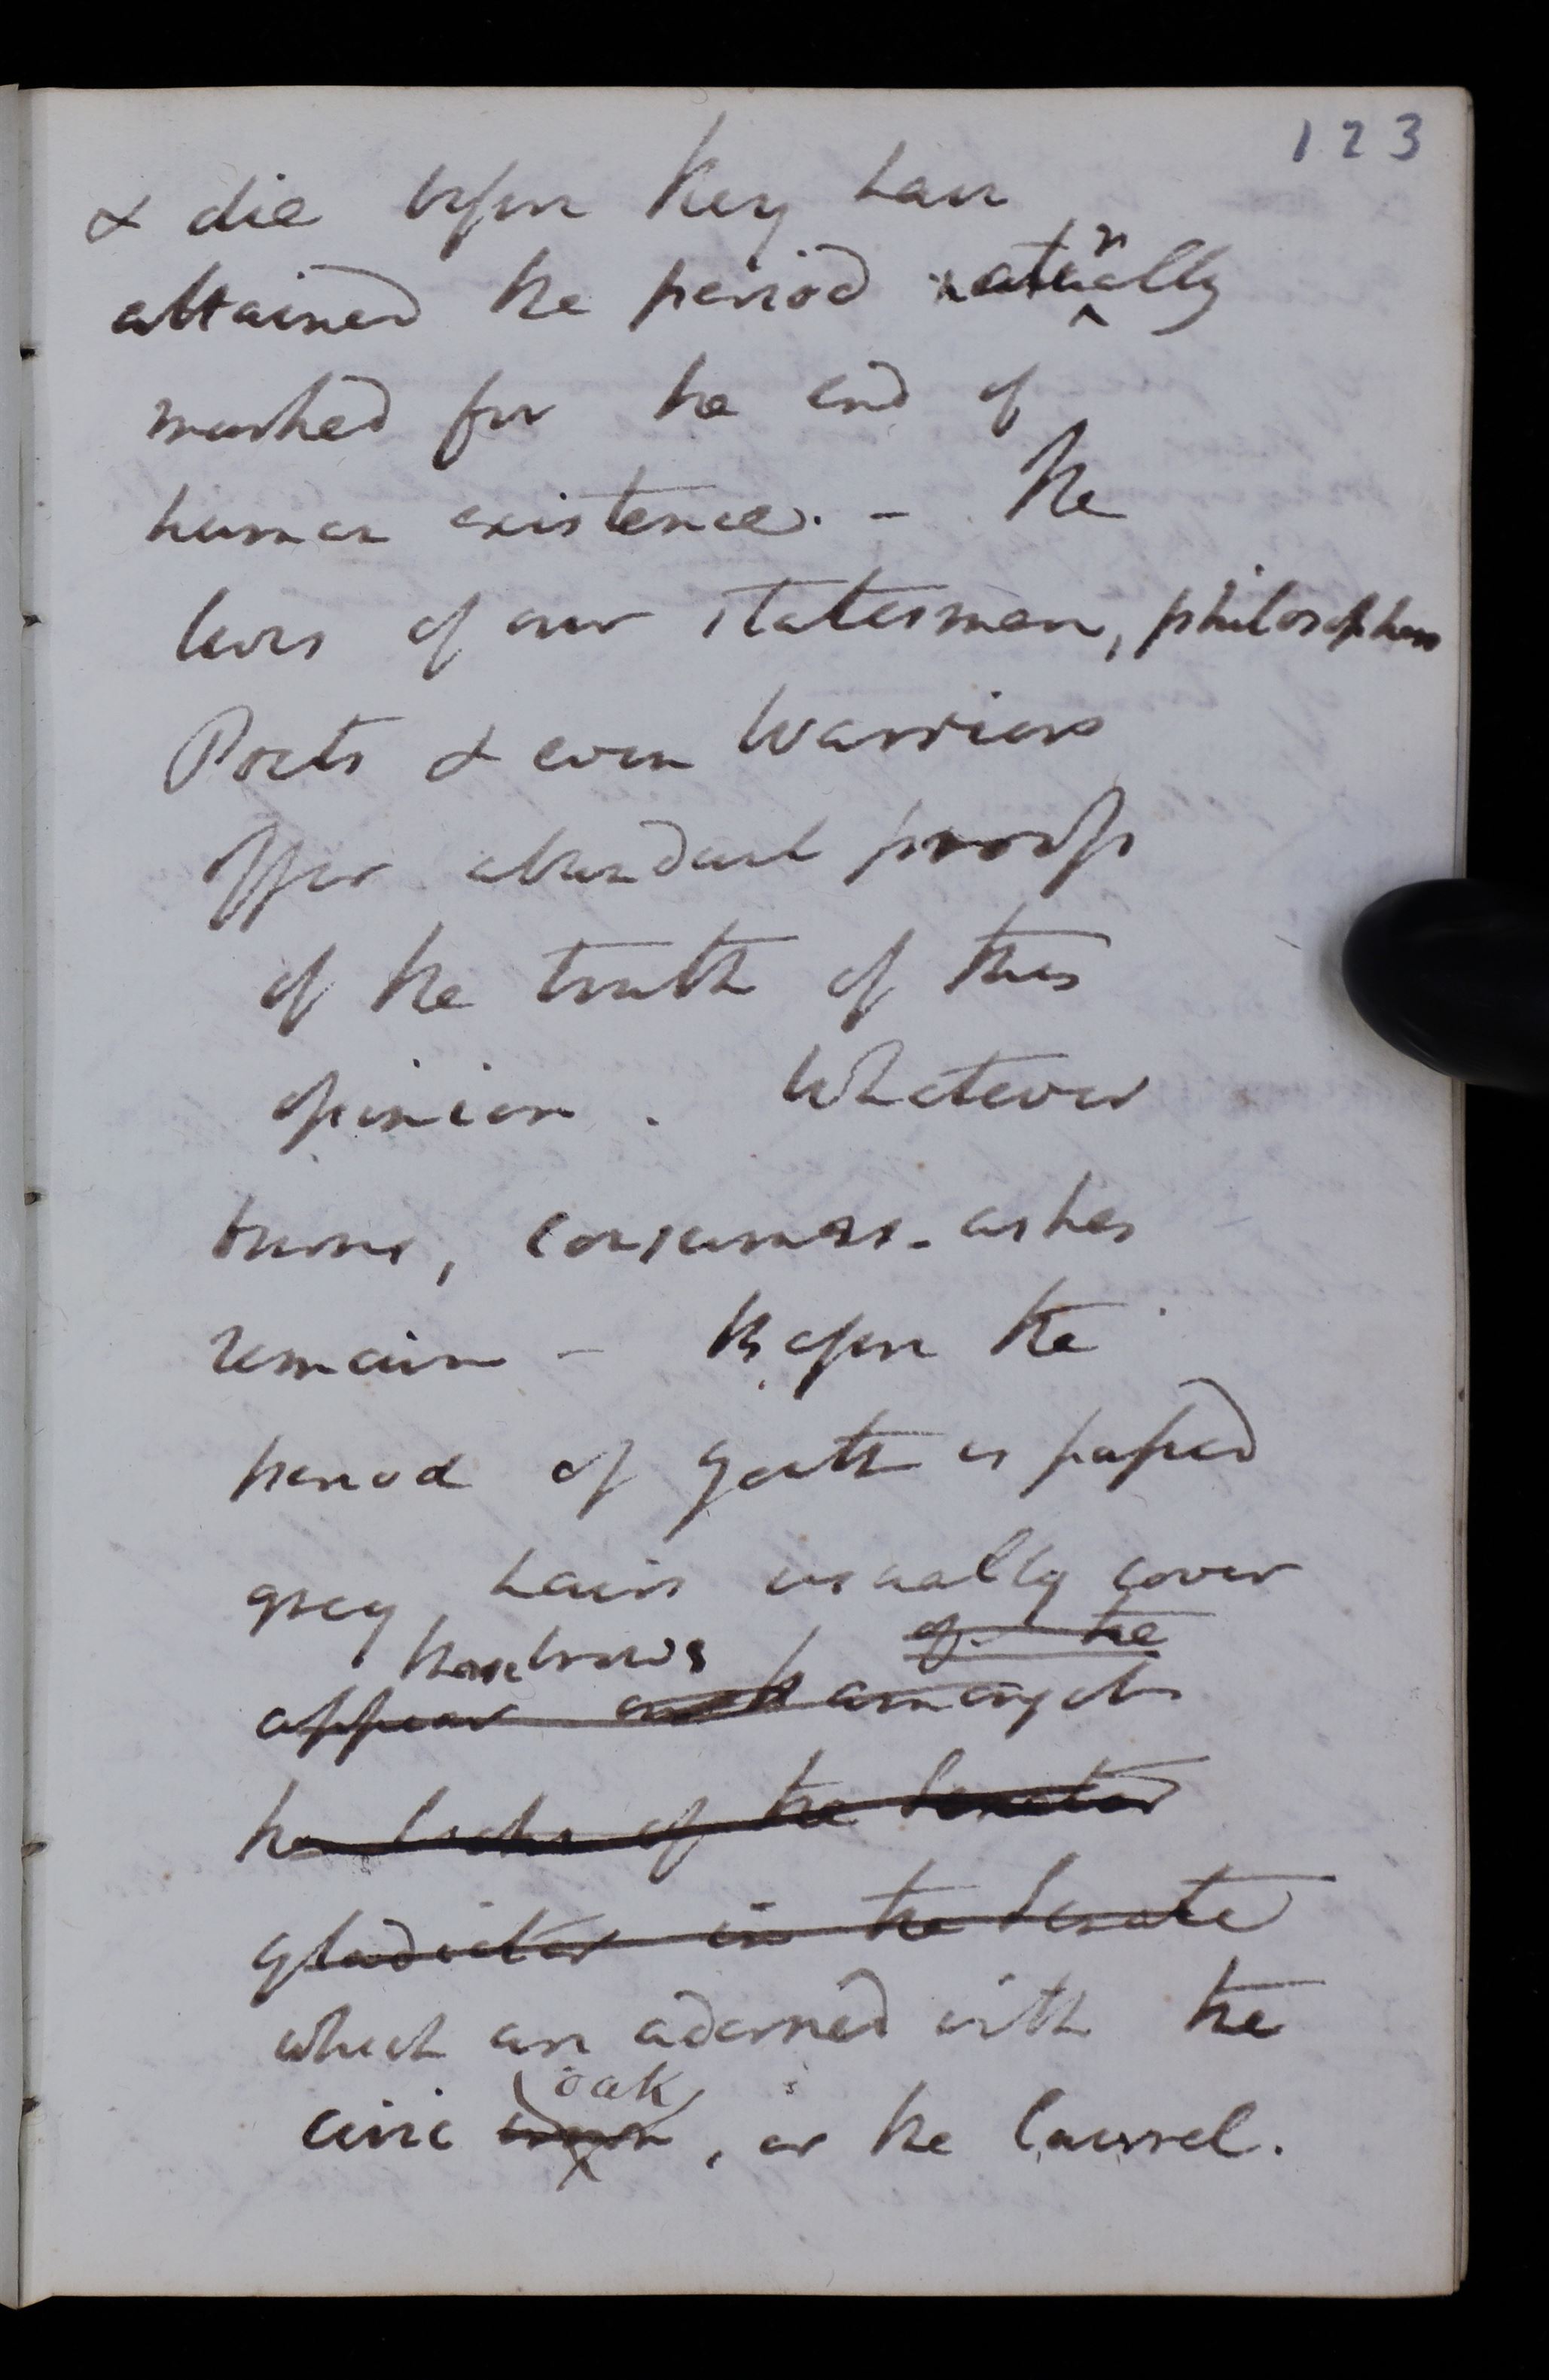 123
& die before they have
attained the period naturally
marked for the end of
human existence. - The
lives of our statesmen, philosophers
Poets & even Warriors
offer abundant proofs
of the truth of this
opinion. Whatever
burns, consumes - ashes
remain - Before the
period of youth is passed
grey hairs usually cover
those brows of the
appear amongst
the locks of the Senator
gladiator in the Senate
which are adorned with the
oak
civic crown, or the laurel.